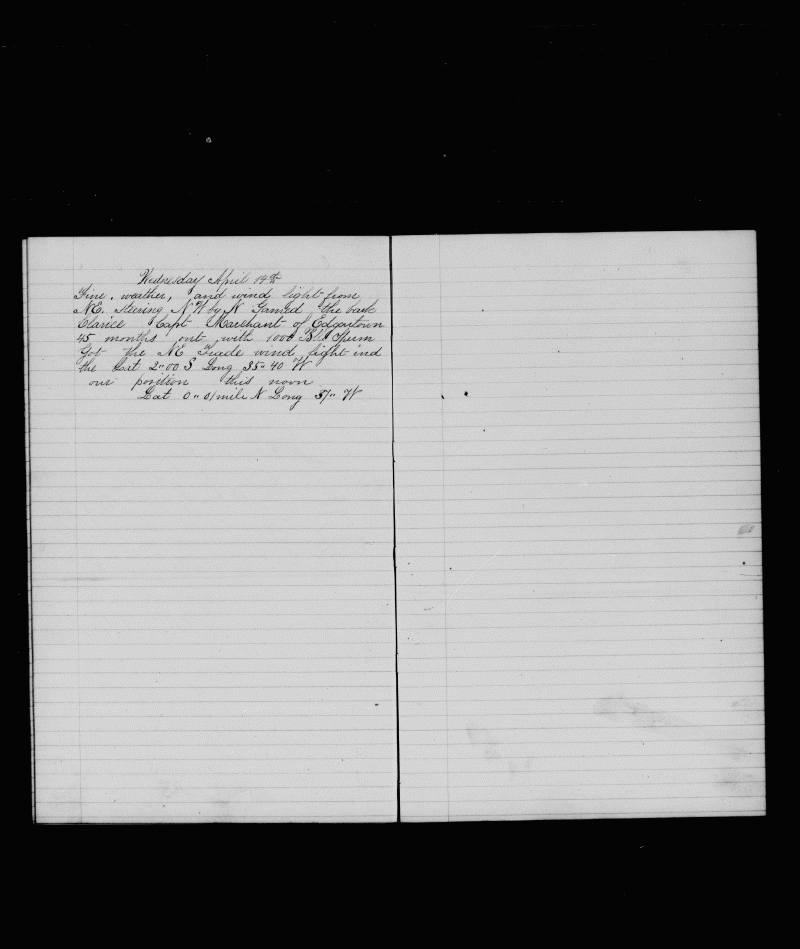 Wednesday April 14th
Fine, weather, and wind light from
NE. Steering N W by N Gamed the bark
Clarice Capt Marchant of Edgartown
45 months out with 1000 Bbls Sperm
Got the NE Trade wind light ind
the Lat 2"00 S Long 35"40 W
our position this noon
Lat 0"01 mile N Long 37" W